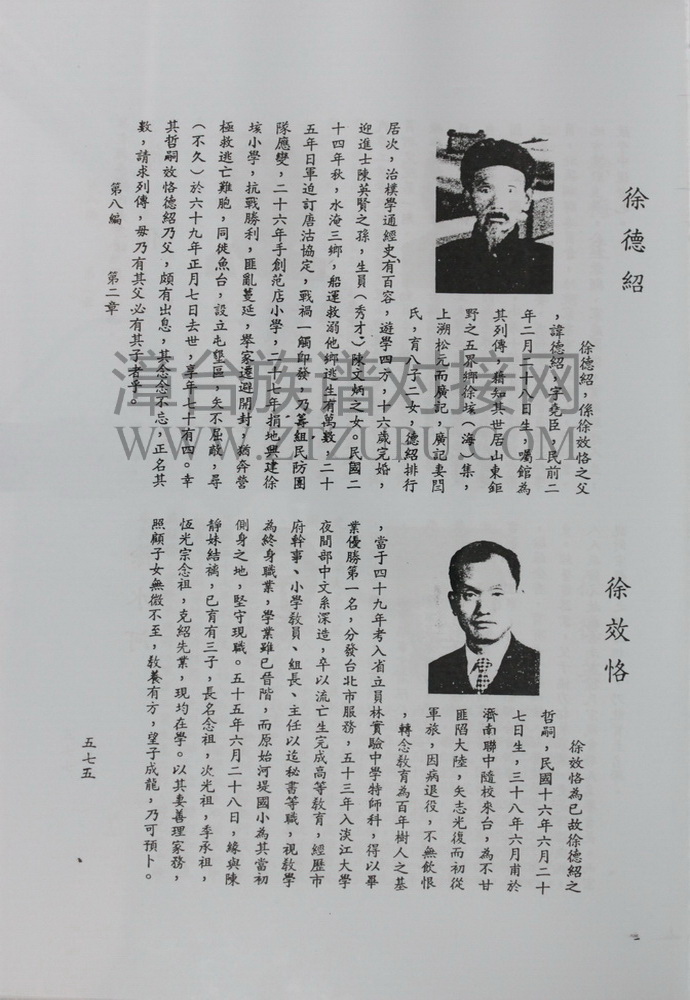 徐德紹
徐德紹，係徐效恪之父
，諱德紹，字堯臣，民前二
年二月二十八日生，囑館為
其列傳，藉知其世居山東鉅
野之五界鄉徐垓（海）集，
上溯松元而廣記，廣記妻閆
氏，育八子二女，德紹排行
居次，治樸學通經史，有百容，遊學四方，十六歲完婚，
迎進士陳英賢之孫，生員（秀才）陳文炳之女。民國二
十四年秋，水淹三鄉，船運救溺他鄉逃生有萬數，二十
五年日軍迫訂唐沽協定，戰禍一觸即發，乃籌組民防團
隊應變，二十六年手創范店小學，二十七年捐地興建徐
垓小學，抗戰勝利，匪亂蔓延，舉家遷避開封，猶奔營
極救逃亡難胞，同徙魚台，設立屯墾區，矢不屈敵，尋
（不久）於六十九年正月七日去世，享年七十有四。幸
其哲嗣效恪德紹乃父，頗有出息，其念念不忘，正名其
數，請求列傳，毋乃有其父必有其子者乎。
第八編 第二章
徐效恪
徐效恪為已故徐德紹之
哲嗣，民國十六年六月二十
七日生，三十八年六月甫於
濟南聯中隨校來台，為不甘
匪陷大陸，矢志光復而初從
軍旅，因病退役，不無飲恨
，轉念教育為百年樹人之基
，當于四十九年考入省立員林實驗中學特師科，得以畢
業優勝第一名，分發台北市服務，五十三年入淡江大學
夜間部中文系深造，卒以流亡生完成高等教育，經歷市
府幹事、小學教員、組長、主任以迄秘書等職，視教學
為終身職業，學業雖已晉階，而原始河堤國小為其當初
側身之地，堅守現職。五十五年六月二十八日，緣與陳
靜妹結褵，已育有三子，長名念祖，次光祖，季承祖，
恆光宗念祖，克紹先業，現均在學。以其妻善理家務，
照顧子女無微不至，教養有方，望子成龍，乃可預卜。
五七五
漳台族谱对接网
WWW.ZTZUPU.COM